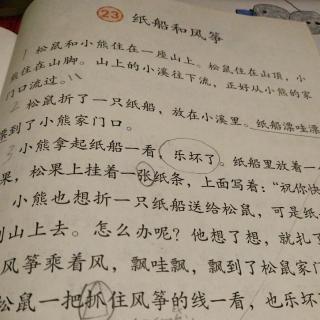 23 纸船和风筝
1 松鼠和小熊住在一座山上。松鼠住在山顶，小
熊住在山脚。山上的小溪往下流，正好从小熊的家
门口流过。
2 松鼠折了一只纸船，放在小溪里。纸船漂哇漂
漂到了小熊家门口。
3 小熊拿起纸船一看，乐坏了。纸船里放着一
果，松果上挂着一张纸条，上面写着：“祝你快
小熊也想折一只纸船送给松鼠，可是纸
到山上去。怎么办呢？他想了想，就扎了
风筝乘着风，飘哇飘，飘到了松鼠家门
松鼠一把抓住风筝的线一看，也乐坏